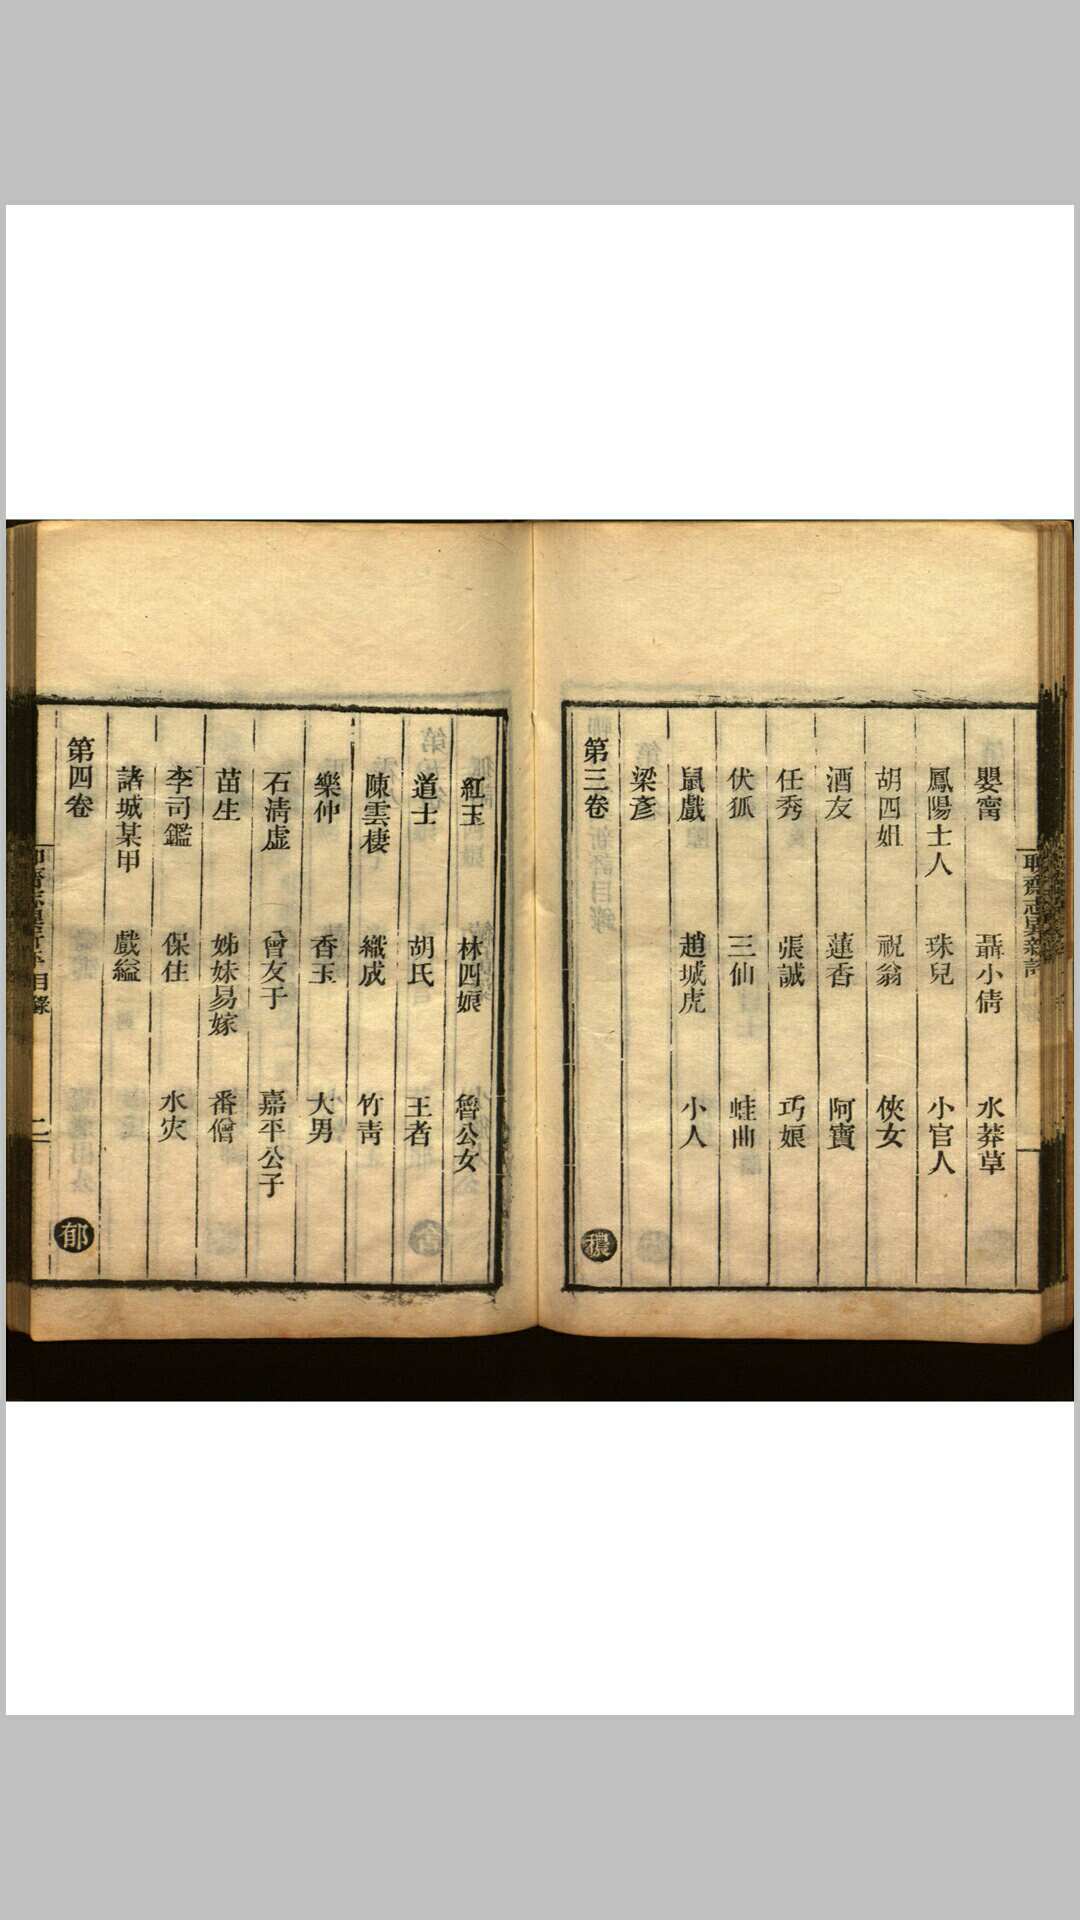 嬰甯 聶小倩 水莽草
鳳陽士人 珠兒 小官人
胡四姐 祝翁 俠女
酒友 蓮香 阿寶
任秀 張誠 巧娘
伏狐 三仙 蛙曲
鼠戲 趙城虎 小人
梁彥
第三卷
穠
紅玉 林四娘 魯公女
道士 胡氏 王者
陳雲棲 織成 竹青
樂仲 香玉 大男
石清虛 曾友于 嘉平公子
苗生 姊妹易嫁 番僧
李司鑑 保住 水灾
諸城某甲 戲縊
第四卷
郁
目錄 二